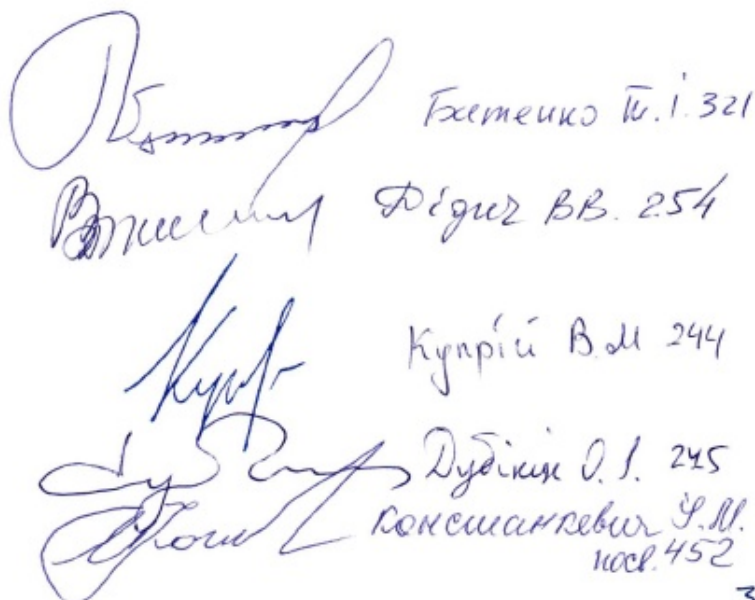 Батенко Т.І. 321
Дідич ВВ. 254
Купрій В.М 244
Дубікін О.І. 245
Констанкевич І.М.
посв. 452